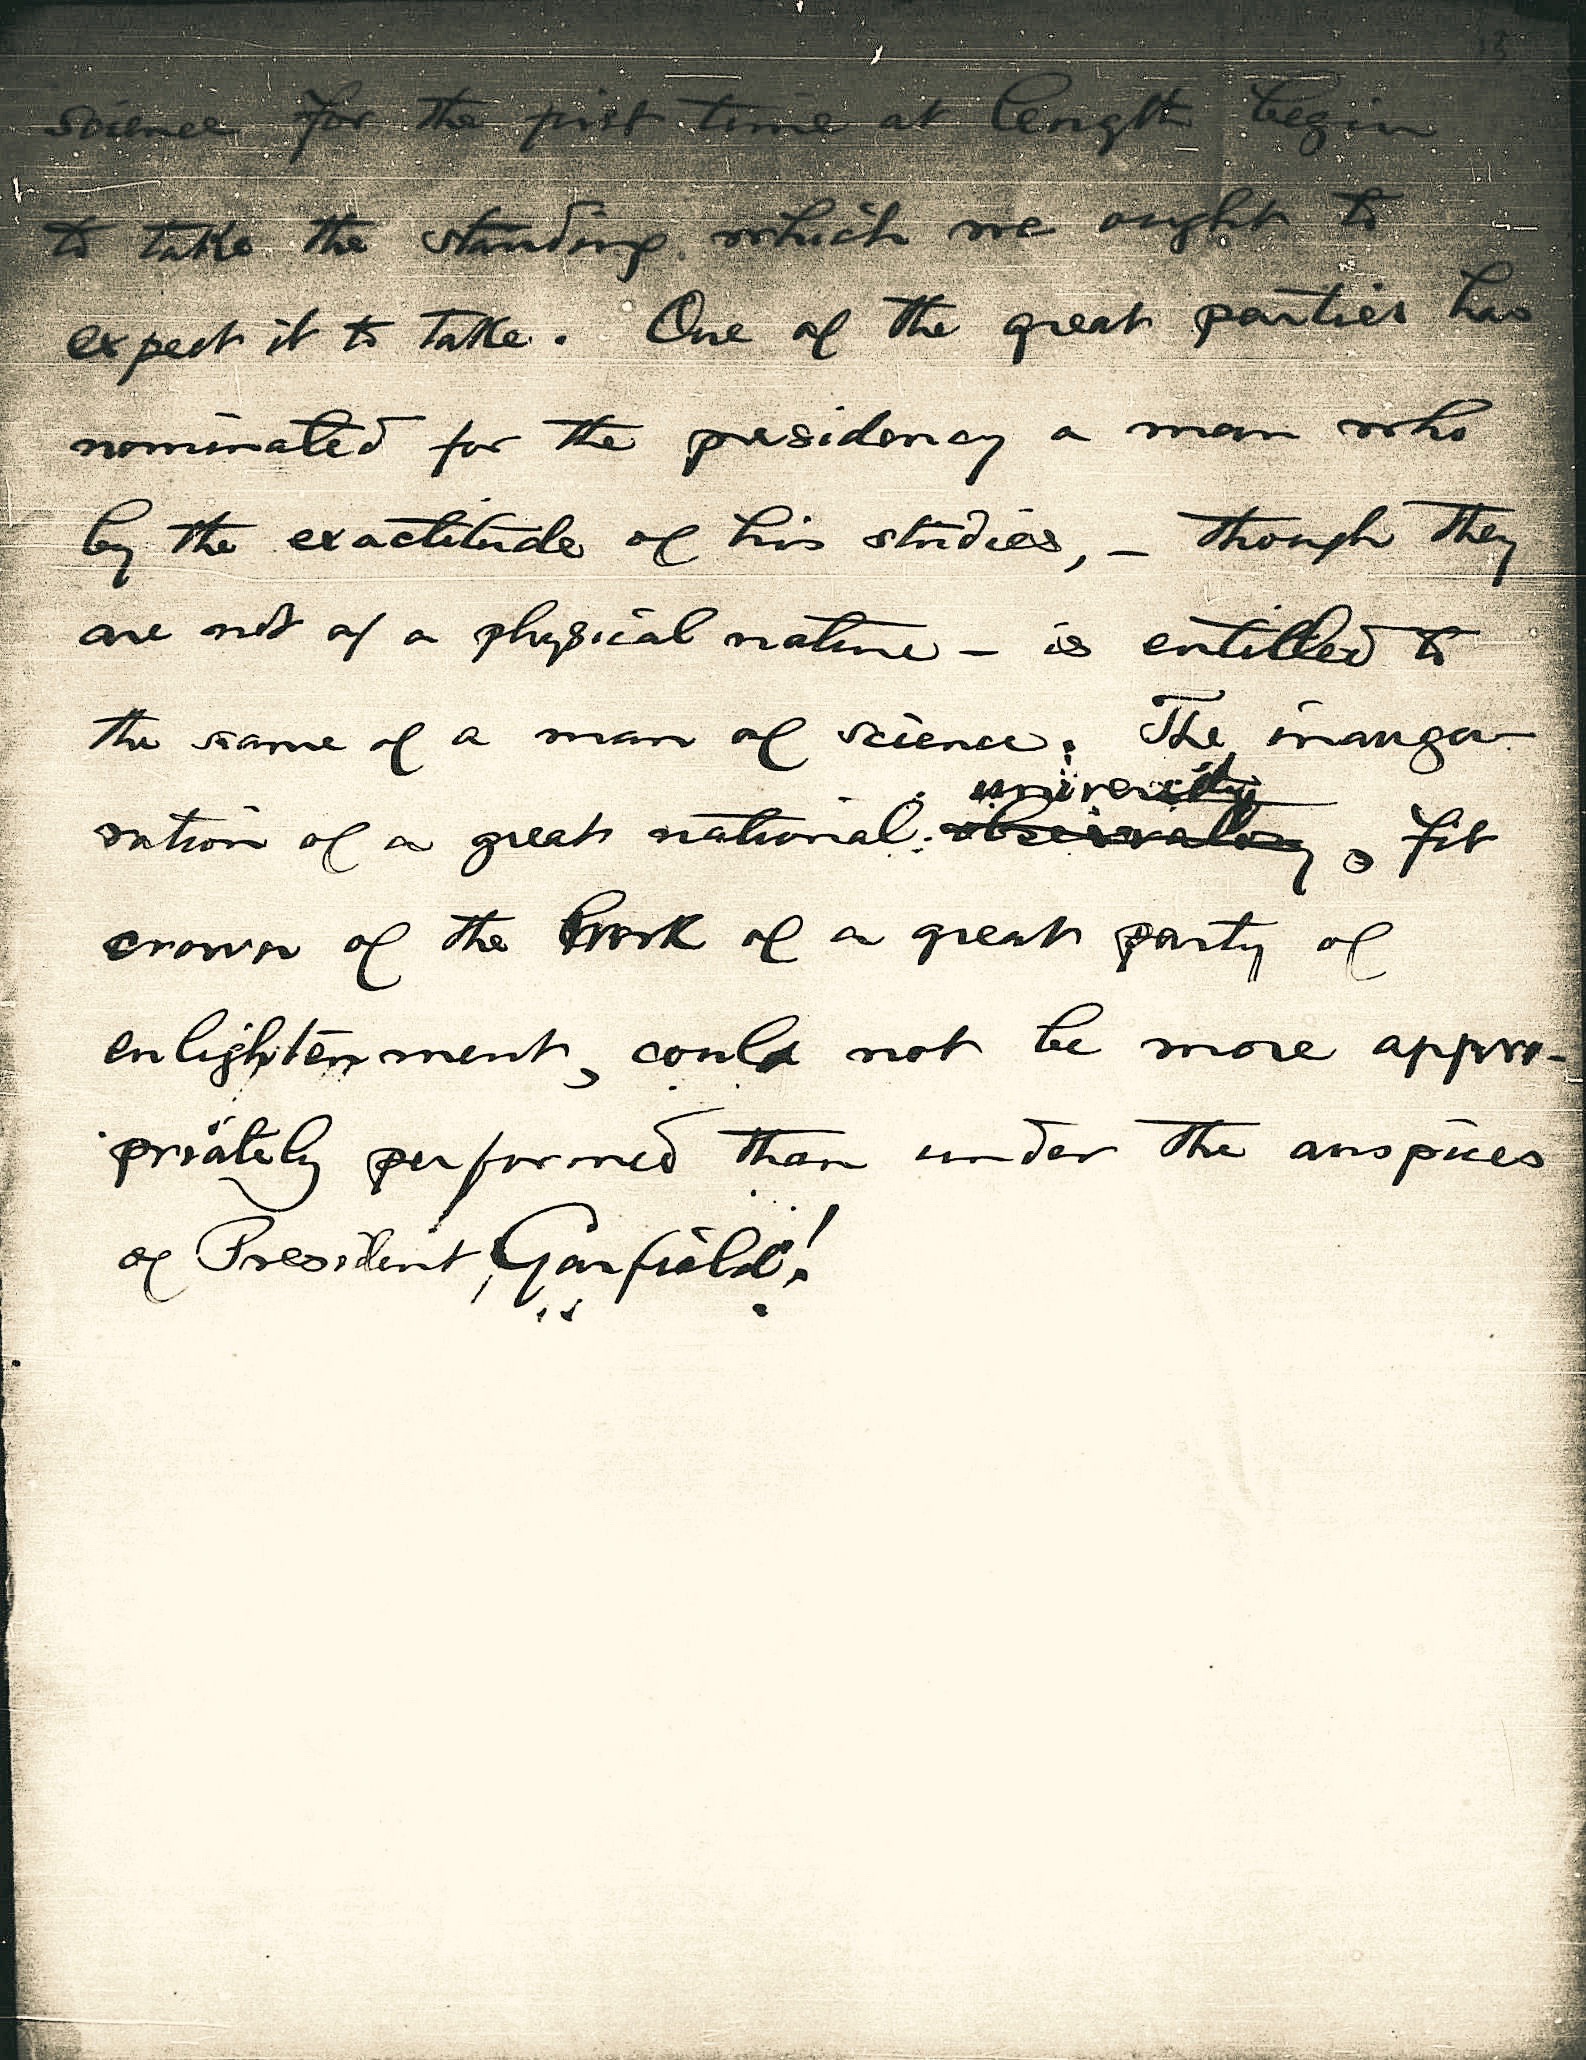 13
science for the first time at length begin
to take the standing which we ought to
expect it to take. One of the great parties has
nominated for the presidency a man who
by the exactitude of his studies, – though they
are not of a physical nature – is entitled to
the name of a man of science. The inaugu-
university
ration of a great national observatory, fit
crown of the work of a great party of
enlightenment, could not be more appro-
priately performed than under the auspices
of President Garfield!